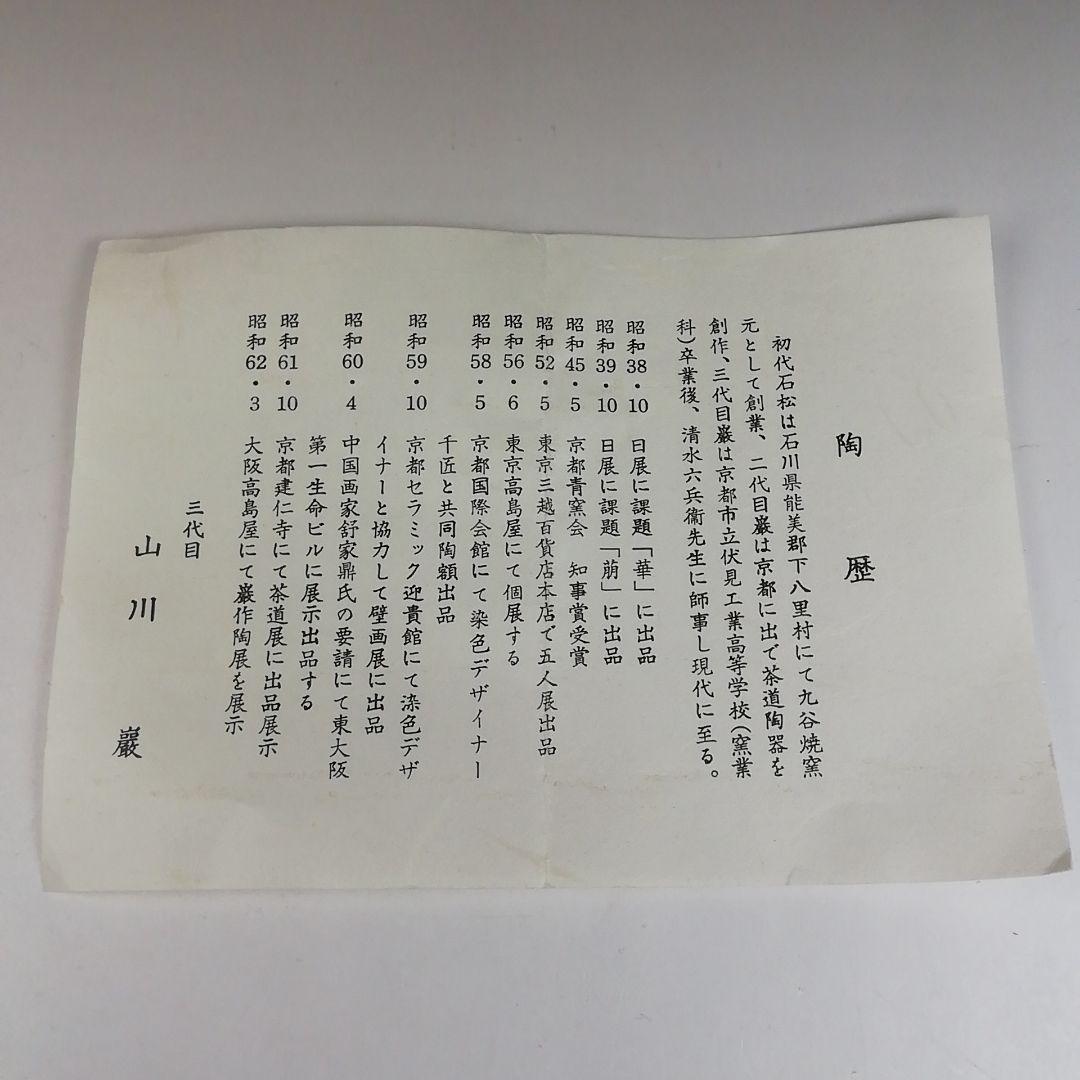 陶歴
初代石松は石川県能美郡下八里村にて九谷焼窯
元として創業、二代目巌は京都に出で茶道陶器を
創作、三代目巌は京都市立伏見工業高等学校(窯業
科)卒業後、清水六兵衛先生に師事し現代に至る。
昭和38・10 日展に課題「華」に出品
昭和39・10 日展に課題「萠」に出品
昭和45・5 京都青窯会 知事賞受賞
昭和52・5 東京三越百貨店本店で五人展出品
昭和56・6 東京高島屋にて個展する
昭和58・5 京都国際会館にて染色デザイナー
千匠と共同陶額出品
昭和59・10 京都セラミック迎貴館にて染色デザ
イナーと協力して壁画展に出品
昭和60・4 中国画家舒家鼎氏の要請にて東大阪
第一生命ビルに展示出品する
昭和61・10 京都建仁寺にて茶道展に出品展示
昭和62・3 大阪高島屋にて巌作陶展を展示
三代目
山川 巖